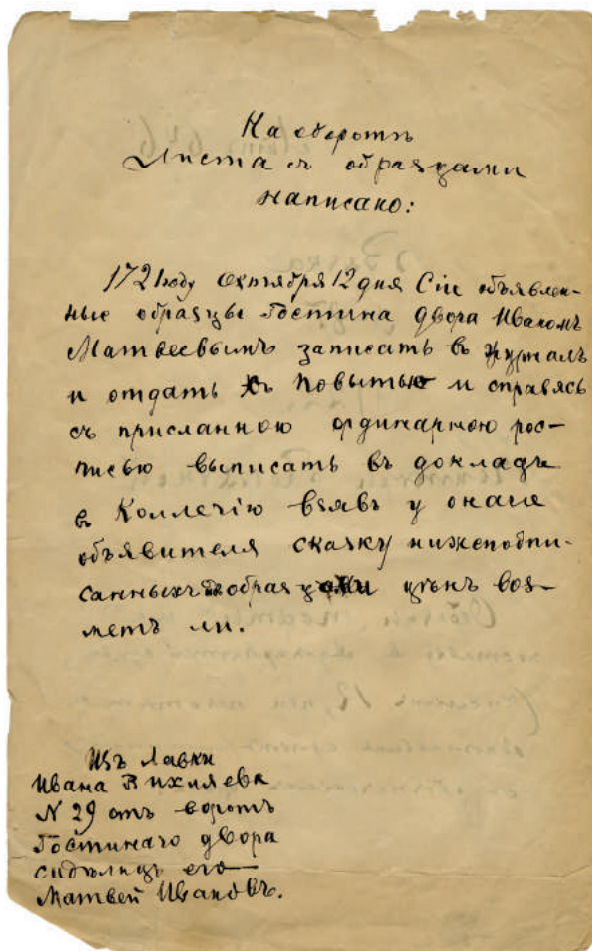 На оборотѣ
Листа съ образцами
написано:
172 году октября 12 дня Сіи объявлен-
ные образцы Гостина двора Иваномъ
Матвеевымъ записать в журналъ
и отдать къ повытью и справясь
съ присланною ординарною рос-
писью выписать въ докладъ
в Коллегію взявъ у онаго
объявителя скаску нижеподпи-
санныхъ образ цѣнъ воз-
метъ ли.
Изъ Лавки
Ивана Вихляева
N 29 отъ воротъ
Гостинаго двора
сидѣлецъ его
Матвей Ивановъ.